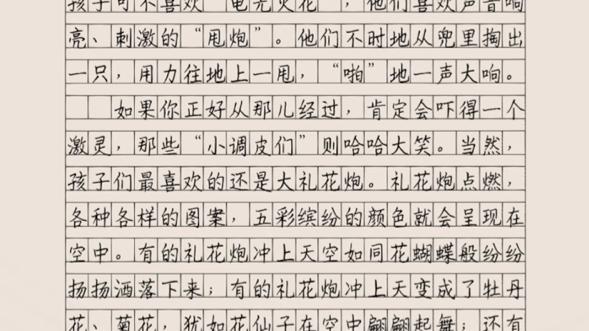 孩子可不喜欢“电光火花”，他们喜欢声音响
亮、刺激的“甩炮”。他们不时地从兜里掏出
一只，用力往地上一甩，“啪”地一声大响。
如果你正好从那儿经过，肯定会吓得一个
激灵，那些“小调皮们”则哈哈大笑。当然，
孩子们最喜欢的还是大礼花炮。礼花炮点燃，
各种各样的图案，五彩缤纷的颜色就会呈现在
空中。有的礼花炮冲上天空如同花蝴蝶般纷纷
扬扬洒落下来；有的礼花炮冲上天变成了牡丹
花、菊花，犹如花仙子在空中翩翩起舞；还有